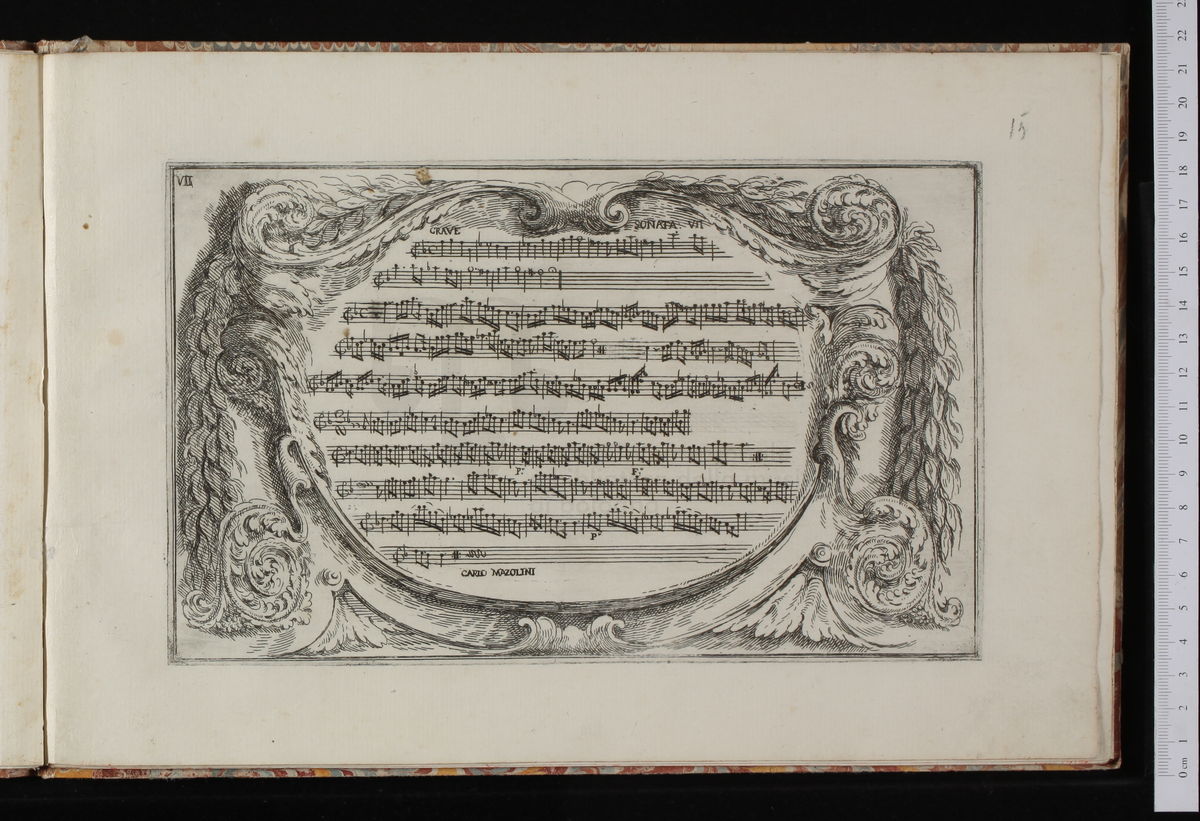 15
VII
GRAVE SONATA. VII
F.º F.º
P.º
CARLO MAZOLINI
0 cm 1 2 3 4 5 6 7 8 9 10 11 12 13 14 15 16 17 18 19 20 21 22